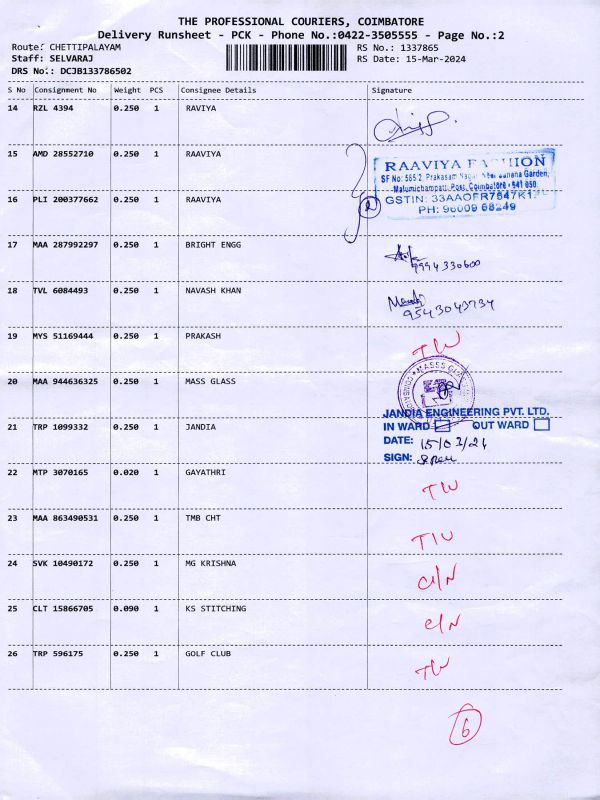 THE PROFESSIONAL COURIERS, COIMBATORE
Delivery Runsheet - PCK - Phone No.:0422-3505555 - Page No.:2
Route: CHETTIPALAYAM
Staff: SELVARAJ
DRS No.: DCJB133786502
RS No.: 1337865
RS Date: 15-Mar-2024
S No Consignment No Weight PCS Consignee Details Signature
14 RZL 4394 0.250 1 RAVIYA
15 AMD 28552710 0.250 1 RAAVIYA
RAAVIYA FASHION
SF No: 565/2, Prakasam Nagar, Near Banana Garden,
Malumichampatti Post, Coimbatore - 641 050.
16 PLI 200377662 0.250 1 RAAVIYA
2
GSTIN: 33AAOFR7647K1
PH: 96009 68249
17 MAA 287992297 0.250 1 BRIGHT ENGG
9994330600
18 TVL 6084493 0.250 1 NAVASH KHAN
9543043734
19 MYS 51169444 0.250 1 PRAKASH
TW
20 MAA 944636325 0.250 1 MASS GLASS
JANDIA ENGINEERING PVT. LTD.
21 TRP 1099332 0.250 1 JANDIA
IN WARD OUT WARD
DATE: 15/03/24
SIGN:
22 MTP 3070165 0.020 1 GAYATHRI
TW
23 MAA 863490531 0.250 1 TMB CHT
TW
24 SVK 10490172 0.250 1 MG KRISHNA
C/N
25 CLT 15866705 0.090 1 KS STITCHING
C/N
26 TRP 596175 0.250 1 GOLF CLUB
TW
6